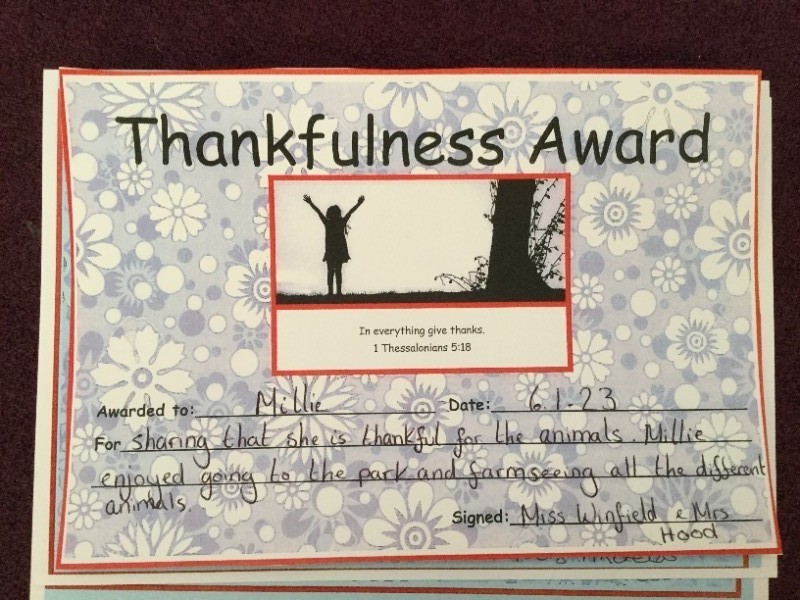 Thankfulness Award
In everything give thanks.
1 Thessalonians 5:18
Awarded to: Millie Date: 6.1.23
For sharing that she is thankful for the animals. Millie
enjoyed going to the park and farm seeing all the different
animals.
Signed: Miss Winfield & Mrs
Hood